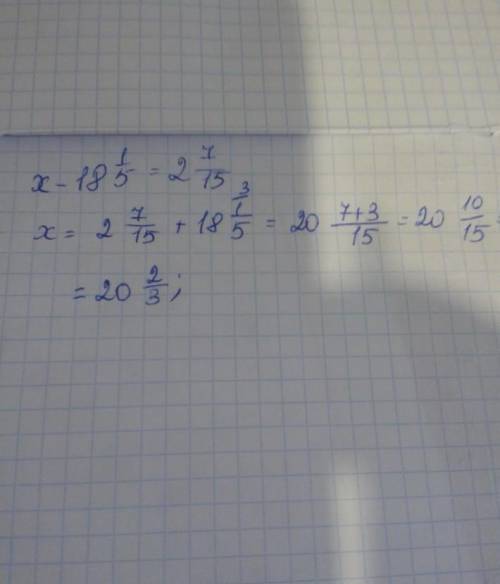 x - 18 1/5 = 2 7/15
x = 2 7/15 + 18 1/5 ³ = 20 (7+3)/15 = 20 10/15 =
= 20 2/3;